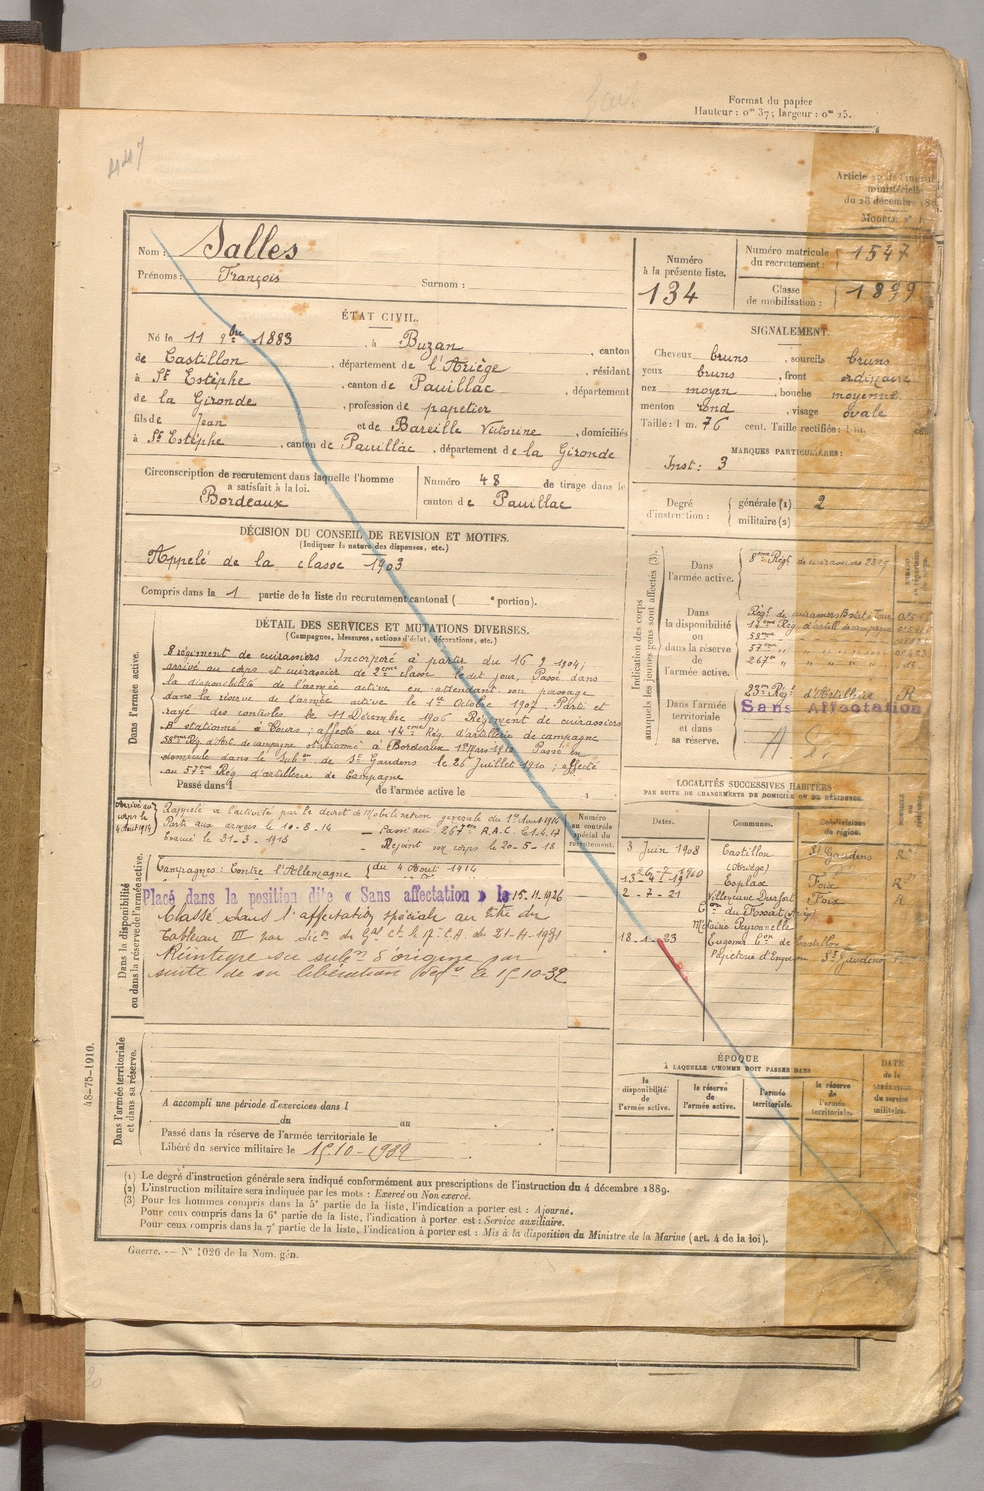 Format du papier
Hauteur : 0m 37; largeur : 0m 25.
447
Article
ministérielle
du 28 décembre
MODÈLE
Nom : Salles
Prénoms : François
Surnom :
Numéro
à la présente liste.
134
Numéro matricule
du recrutement : 1547
Classe
de mobilisation : 1899
ÉTAT CIVIL.
Né le 11 9bre 1883, à Buzan, canton
de Castillon, département de l'Ariège, résidant
à St Estèphe, canton de Pauillac, département
de la Gironde, profession de papetier
fils de Jean et de Bareille Victorine, domiciliés
à St Estèphe, canton de Pauillac, département de la Gironde
SIGNALEMENT.
Cheveux bruns, sourcils bruns
yeux bruns, front ordinaire
nez moyen, bouche moyenne
menton rond, visage ovale
Taille : 1 m. 76 cent. Taille rectifiée : 1 m. cent
MARQUES PARTICULIÈRES :
Inst : 3
Circonscription de recrutement dans laquelle l'homme
a satisfait à la loi.
Bordeaux
Numéro 48 de tirage dans le
canton de Pauillac
Degré
d'instruction :
générale (1) 2
militaire (2)
DÉCISION DU CONSEIL DE REVISION ET MOTIFS.
(Indiquer la nature des dispenses, etc.)
Appelé de la classe 1903
Compris dans la 1 partie de la liste du recrutement cantonal ( e portion).
DÉTAIL DES SERVICES ET MUTATIONS DIVERSES.
(Campagnes, blessures, actions d'éclat, décorations, etc.)
Dans l'armée active.
8 régiment de cuirassiers Incorporé à partir du 16 9 1904;
arrivé au corps et cuirassier de 2eme classe ledit jour, Passé dans
la disponibilité de l'armée active en attendant son passage
dans la réserve de l'armée active le 1er Octobre 1907 Parti et
rayé des contrôles le 11 Décembre 1906 Régiment de cuirassiers
8e stationné à Tours; affecté au 14eme Rég. d'artillerie de campagne
58eme Rég. d'Art. de campagne stationné à Bordeaux 1er Mars 1910 Passé en
domicile dans le Subon de St Gaudens le 26 Juillet 1910; affecté
au 57eme Rég. d'artillerie de Campagne
Passé dans l de l'armée active le 1
Indication des corps
auxquels les jeunes gens sont affectés (3).
Dans
l'armée active.
8eme Régt de cuirassiers 2229
Dans
la disponibilité
ou
dans la réserve
de
l'armée active.
Régt de cuirassiers
14eme Rég d'artill de campagne
58eme
57eme
267e
Dans l'armée
territoriale
et dans
sa réserve.
23me Régt d'Artillerie R
Sans Affectation
Dans la disponibilité
ou dans la réserve de l'armée active.
Arrivé au
corps le
4 Aout 1914
Rappelé à l'activité par le décret de Mobilisation générale du 1er Aout 1914
Parti aux armées le 10-8-14 — Passé au 267eme R.A.C. le 1.4.17
Evacué le 31-3-1918 — Rejoint son corps le 20-5-18
Campagnes : Contre l'Allemagne du 4 Aout 1914
Placé dans la position dite « Sans affectation » le 15.11.1926
Classé dans l'affectation spéciale au titre du
Tableau III par décon du Gal Ct le 17e C.A. du 21-4-1931
Réintégré sa subon d'origine par
suite de sa libération le 15-10-32
Numéro
au contrôle
spécial du
recrutement.
LOCALITÉS SUCCESSIVES HABITÉES
PAR SUITE DE CHANGEMENTS DE DOMICILE OU DE RÉSIDENCE.
Dates.
Communes.
Subdivisions
de région.
3 Juin 1908 Castillon St Gaudens R
(Ariège)
Esplas Foix R
2-7-21 Villeneuve Durfort Foix R
du Fossat (Ariège)
Métairie Peyronnelle
18-1-23 Eugomer Con de Castillon
Papeterie d'Engomer St Gaudens
ÉPOQUE
À LAQUELLE L'HOMME DOIT PASSER DANS
la
disponibilité
de
l'armée active.
la réserve
de
l'armée active.
l'armée
territoriale.
la réserve
de
l'armée
territoriale.
DATE
de la
LIBÉRATION
du service
militaire.
Dans l'armée territoriale
et dans sa réserve.
A accompli une période d'exercices dans l
du au
Passé dans la réserve de l'armée territoriale le
Libéré du service militaire le 15-10-1932
48-75-1910.
(1) Le degré d'instruction générale sera indiqué conformément aux prescriptions de l'instruction du 4 décembre 1889.
(2) L'instruction militaire sera indiquée par les mots : Exercé ou Non exercé.
(3) Pour les hommes compris dans la 5e partie de la liste, l'indication à porter est : Ajourné.
Pour ceux compris dans la 6e partie de la liste, l'indication à porter est : Service auxiliaire.
Pour ceux compris dans la 7e partie de la liste, l'indication à porter est : Mis à la disposition du Ministre de la Marine (art. 4 de la loi).
Guerre. — N° 1026 de la Nom. gén.